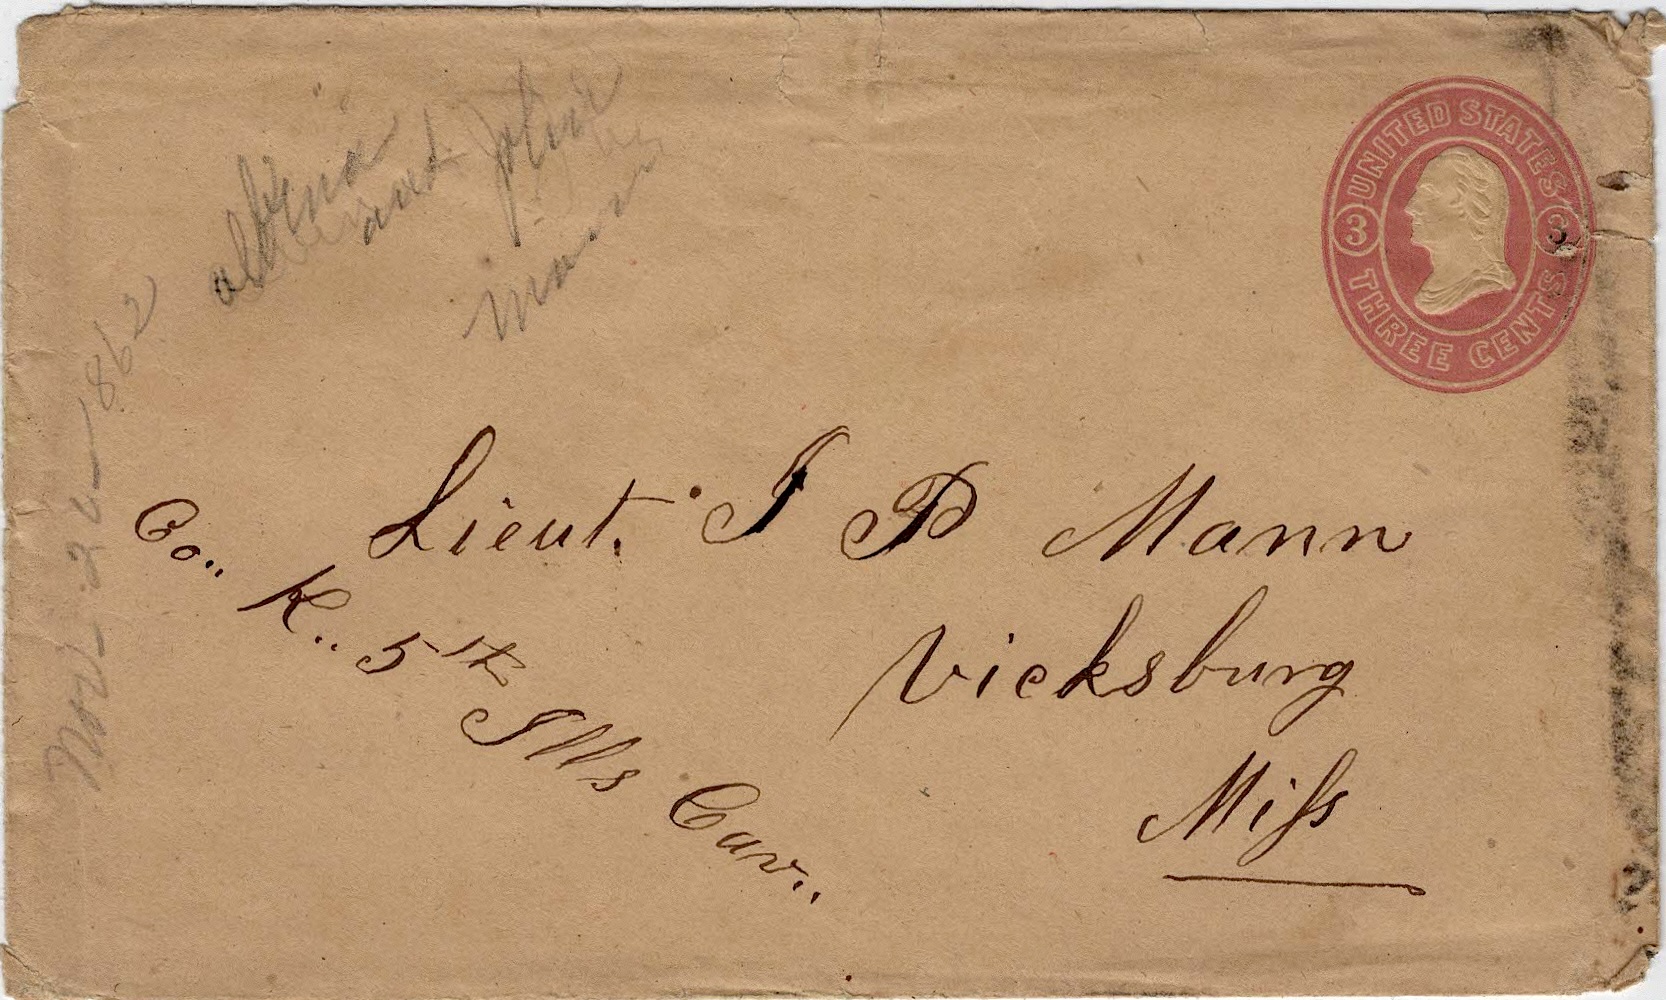 Albina
and John
Mann
Nov - 24 - 1862
UNITED STATES
3 3
THREE CENTS
Lieut. J P Mann
Co.. K.. 5th Ills Cav..
Vicksburg
Miſs